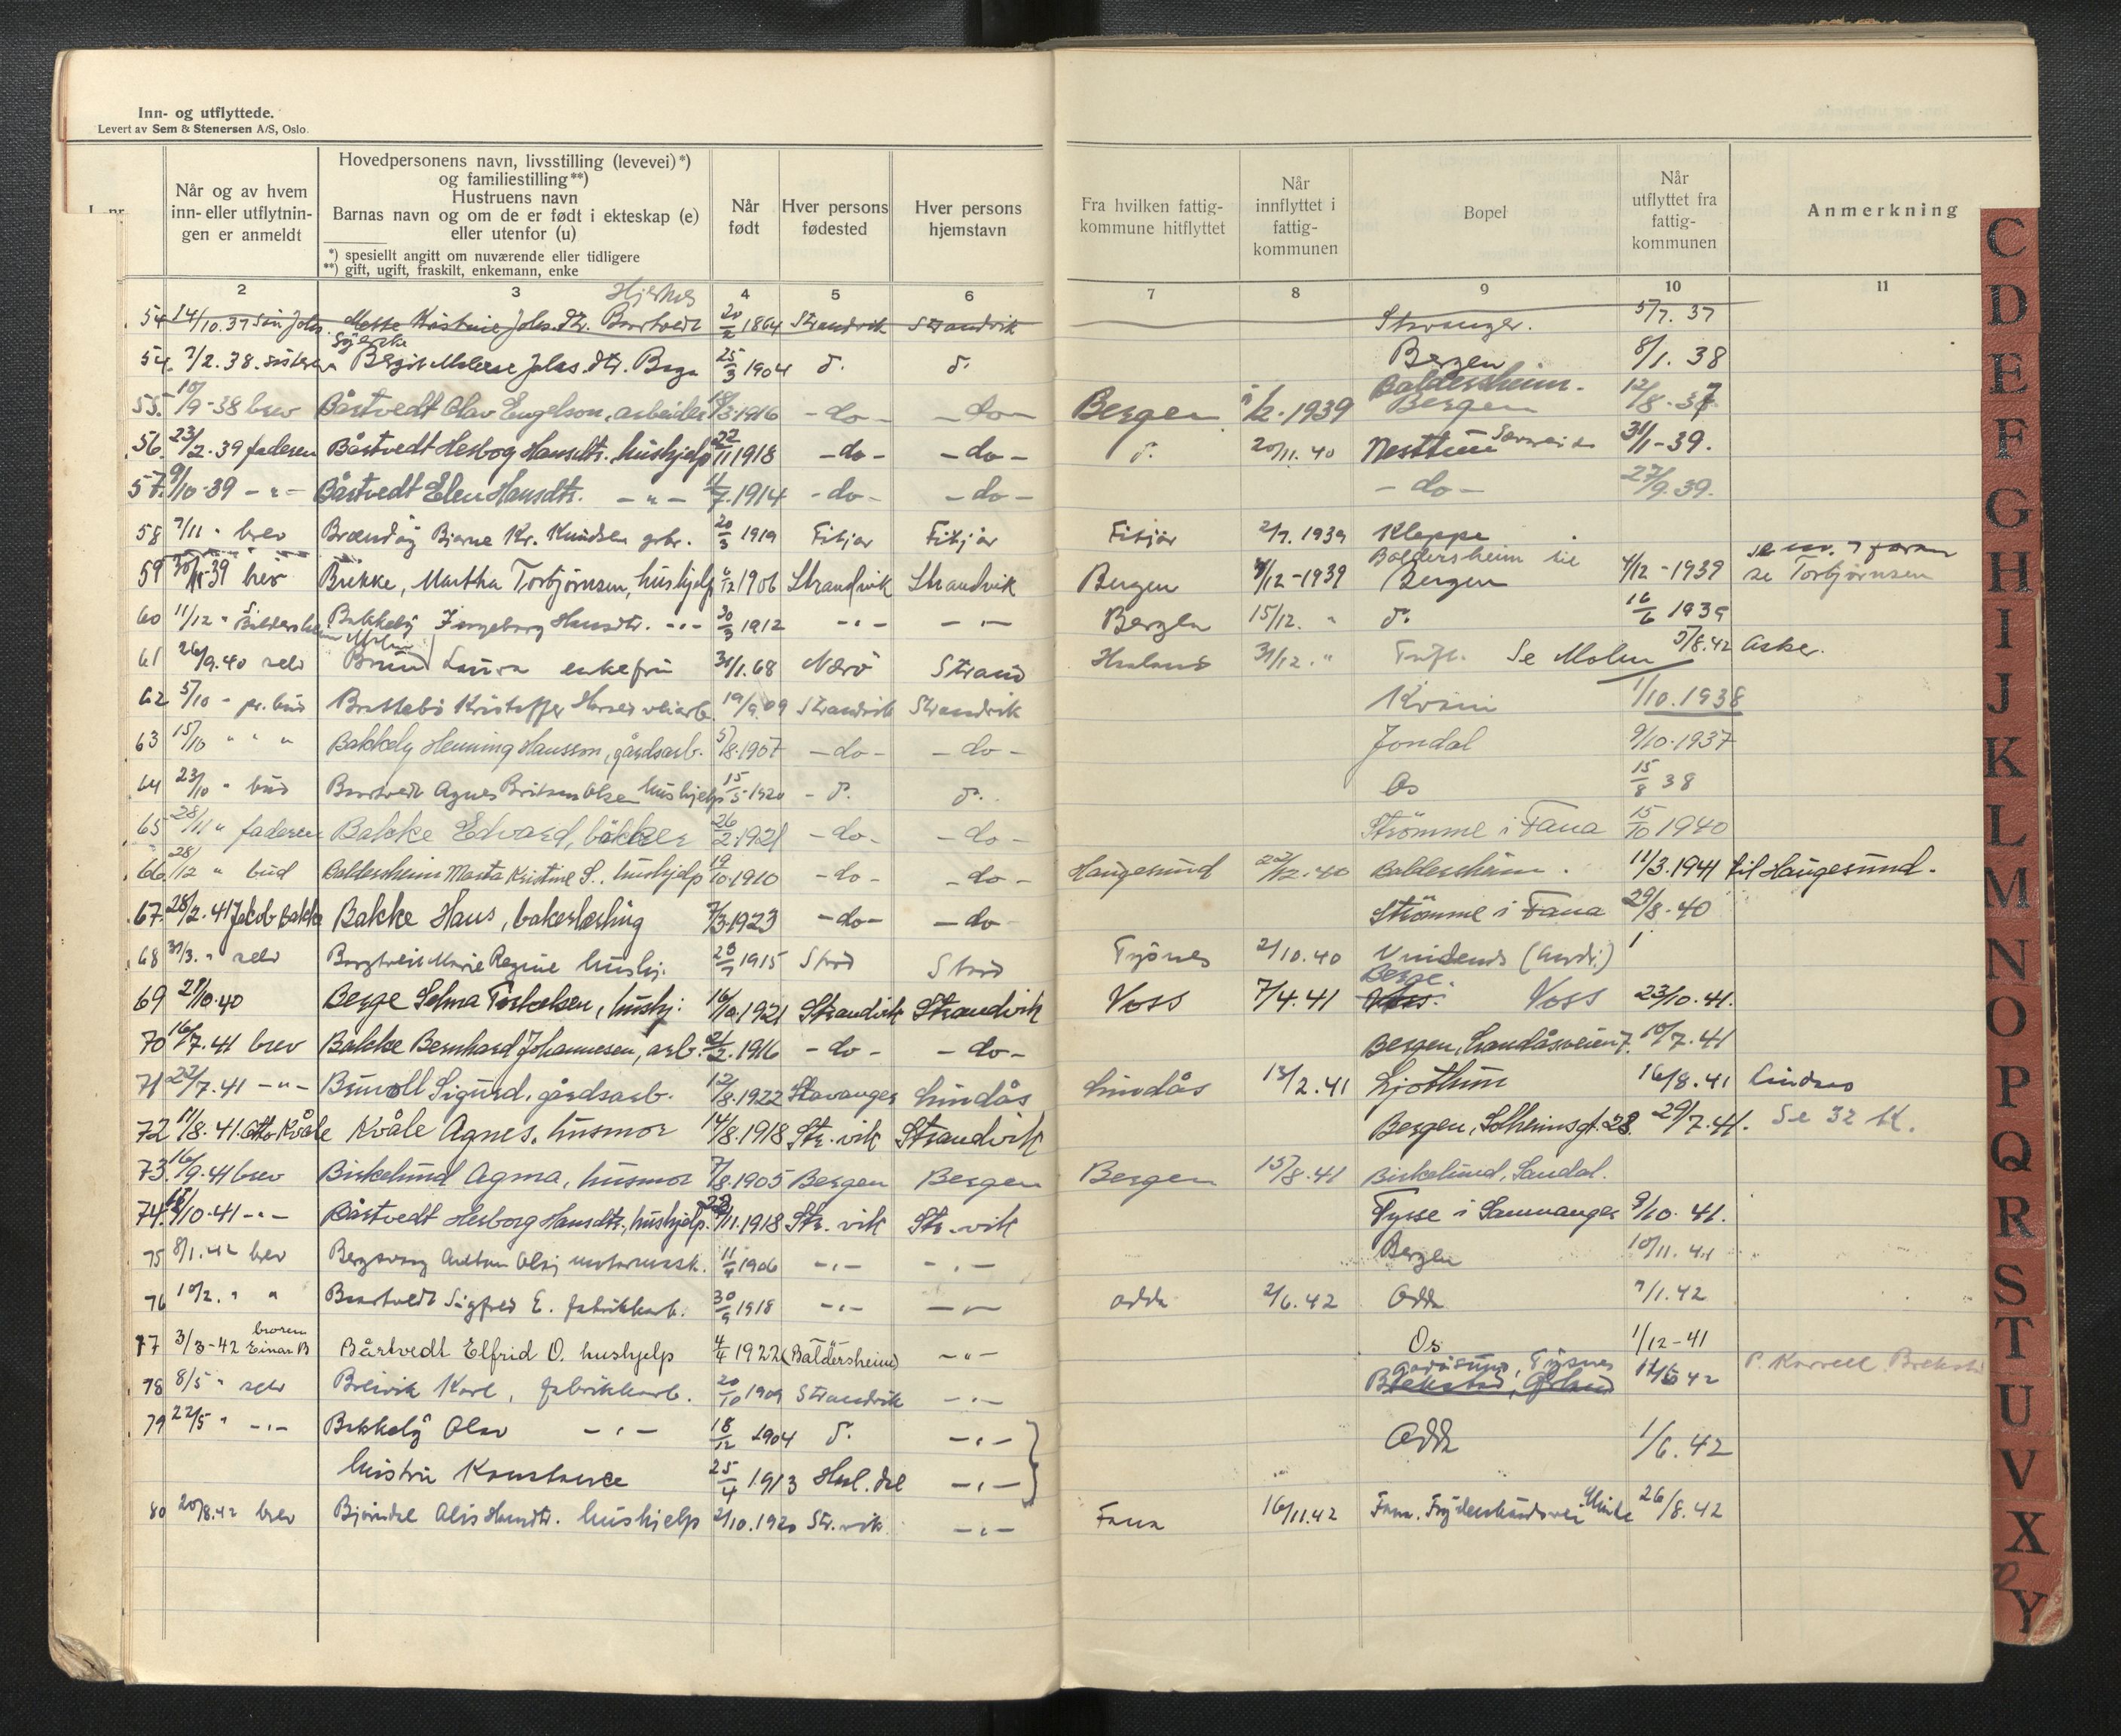 Inn- og utflyttede.
Levert av Sem & Stenersen A/S, Oslo.
Når og av hvem inn- eller utflytnin- gen er anmeldt
Hovedpersonens navn, livsstilling (levevei)*)
og familiestilling**)
Hustruens navn
Barnas navn og om de er født i ekteskap (e)
eller utenfor (u)
*) spesiellt angitt om nuværende eller tidligere
**) gift, ugift, fraskilt, enkemann, enke
Når født
Hver persons fødested
Hver persons hjemstavn
Fra hvilken fattig- kommune hitflyttet
Når innflyttet i fattig- kommunen
Bopel
Når utflyttet fra fattig- kommunen
Anmerkning
2 3 4 5 6 7 8 9 10 11
54 14/10.37 Mette Kristine Johs. Dtr. Baartvedt 20/2 1864 Strandvik Strandvik Stavanger. 5/7. 37
54. 7/2.38. søsteren Johs. dtr. 25/3 1904 d. d. Bergen 8/1. 38
55. 10/9-38 brev Båstvedt Olav Engelson, arbeider 3.1916 -do- -do- Bergen 2.1939 Baldersheim. Bergen 12/8-37
56. 23/2.39 faderen Båstvedt Hesborg Hansdtr. hushjelp 22/11 1918 -do- -do- d. 20/11.40 Nesttun 31/1-39.
57. 9/10-39 -"- Båstvedt Elen Hansdtr. -"- 7.1914 -do- -do- -do- 27/9.39.
58 7/11 " brev Bjarne Kr. Knudsen gbr. 20/3 1919 Fitjar Fitjar Fitjar 2/7. 1939 Kleppe
59 30/11-39 brev Bukke, Martha Torbjørnsen, hushjelp 6/12 1906 Strandvik Strandvik Bergen /12-1939 Baldersheim til Bergen 4/12-1939 se Torbjørnsen
60 11/12 " Ingeborg Hansdtr. -"- 30/3 1912 -"- -"- Bergen 15/12. " d. 16/6 1939
61 26/9.40 selv Laura enkefru 31/1.68 Nærø Strand 31/12." Se Molin 5/8.42 Asker.
62 5/10 - pr. bud Brattebø Kristoffer 19/9.09 Strandvik Strandvik Kvam 1/10.1938
63 15/10 " " " Bakkely Henning Hansson, gårdsarb. 5/8.1907 -do- -do- Jondal 9/10.1937
64 23/10 " bud Baartvedt Agnes Olsen hushjelp 15/5-1920 - d. d. Os 15/8 38
65 28/11 " faderen Bakke Edvard, bakker 26/2.1921 -do- -do- Strømme i Fana 15/10 1940
66. 28/12 " bud Baldersheim Marta Kristine S., hushjelp 19/10.1910 -do- -do- Haugesund 22/12.40 Baldersheim. 11/3.1941 til Haugesund.
67. 28/2.41 Jakob Bakke Bakke Hans, bakerlærling 7/3.1923 -do- -do- Strømme i Fana 29/8.40
68 31/3. " selv Marie Regine hushj. 1915 Stord Stord Tysnes 2/10.40
69 21/10.40 Berge Selma Torkelsen, hushj. 16/10.1921 Strandvik Strandvik Voss 7/4.41 Berge. Voss 23/10.41.
70 16/7.41 brev Bakke Bernhard Johannesen, arb. 21/2.1916 -do- -do- Bergen, Landåsveien 7. 10/7.41
71 22/7.41 -"- Brüvoll Sigurd, gårdsarb. 12/8.1922 Stavanger Lindås Lindås 13/2.41 Ljothun 16/8.41 Lindås
72 11/8.41. Otto Kvåle Kvåle Agnes, husmor 14/8.1918 Str. vik Strandvik Bergen, Solheimsgt. 28. 29/7.41. Se 32 K.
73. 16/9.41 brev Birkelund Agma, husmor 7/8.1905 Bergen Bergen Bergen 15/8.41 Birkelund, Sandal.
74. /10.41 -"- Båstvedt Hesborg Hansdtr., hushjelp. 22/11.1918 Str. vik Str. vik Tysse i Samnanger 9/10.41.
75 8/1.42 brev 11/4 1906 -"- -"- Bergen 10/11.41
76 10/2. " " Baartvedt Sigfred E. fabrikkarb. 30/9 1918 -"- -"- Odda 2/6.42 Odda 7/1.42
77 3/3-42 broren Einar B Bårtvedt Elfrid O. hushjelp 4/4 1922 (Baldersheim) -"- Os 1/12-41
78 8/5 " selv Breivik Karl, fabrikkarb. 20/10 1909 Strandvik -"- Tysnes 42
79 22/5 " -"- Bakkely Olav -"- 18/12 1904 d. -"- Odda 1/6.42
hustru Konstance 25/4 1913 -"-
80 20/8.42 brev Bjørndal Hansdtr. hushjelp 2/10.1920 Str. vik -"- Fana 16/11.42 Fana. 26/8.42
C
D
E
F
G
H
I
J
K
L
M
N
O
P
Q
R
S
T
U
V
X
Y